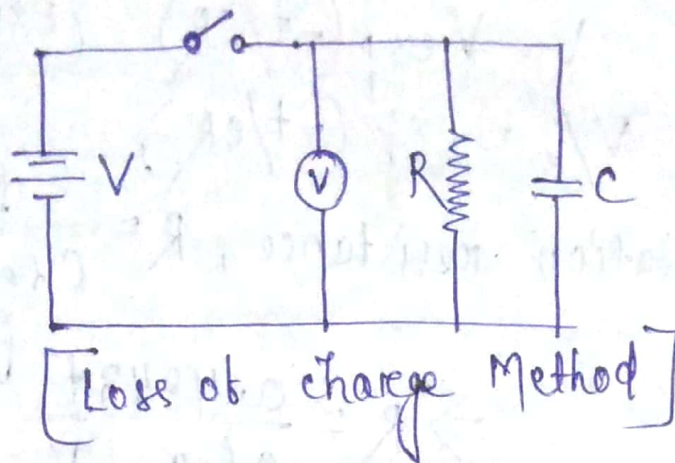 V
V
R
C
[Loss of charge Method]